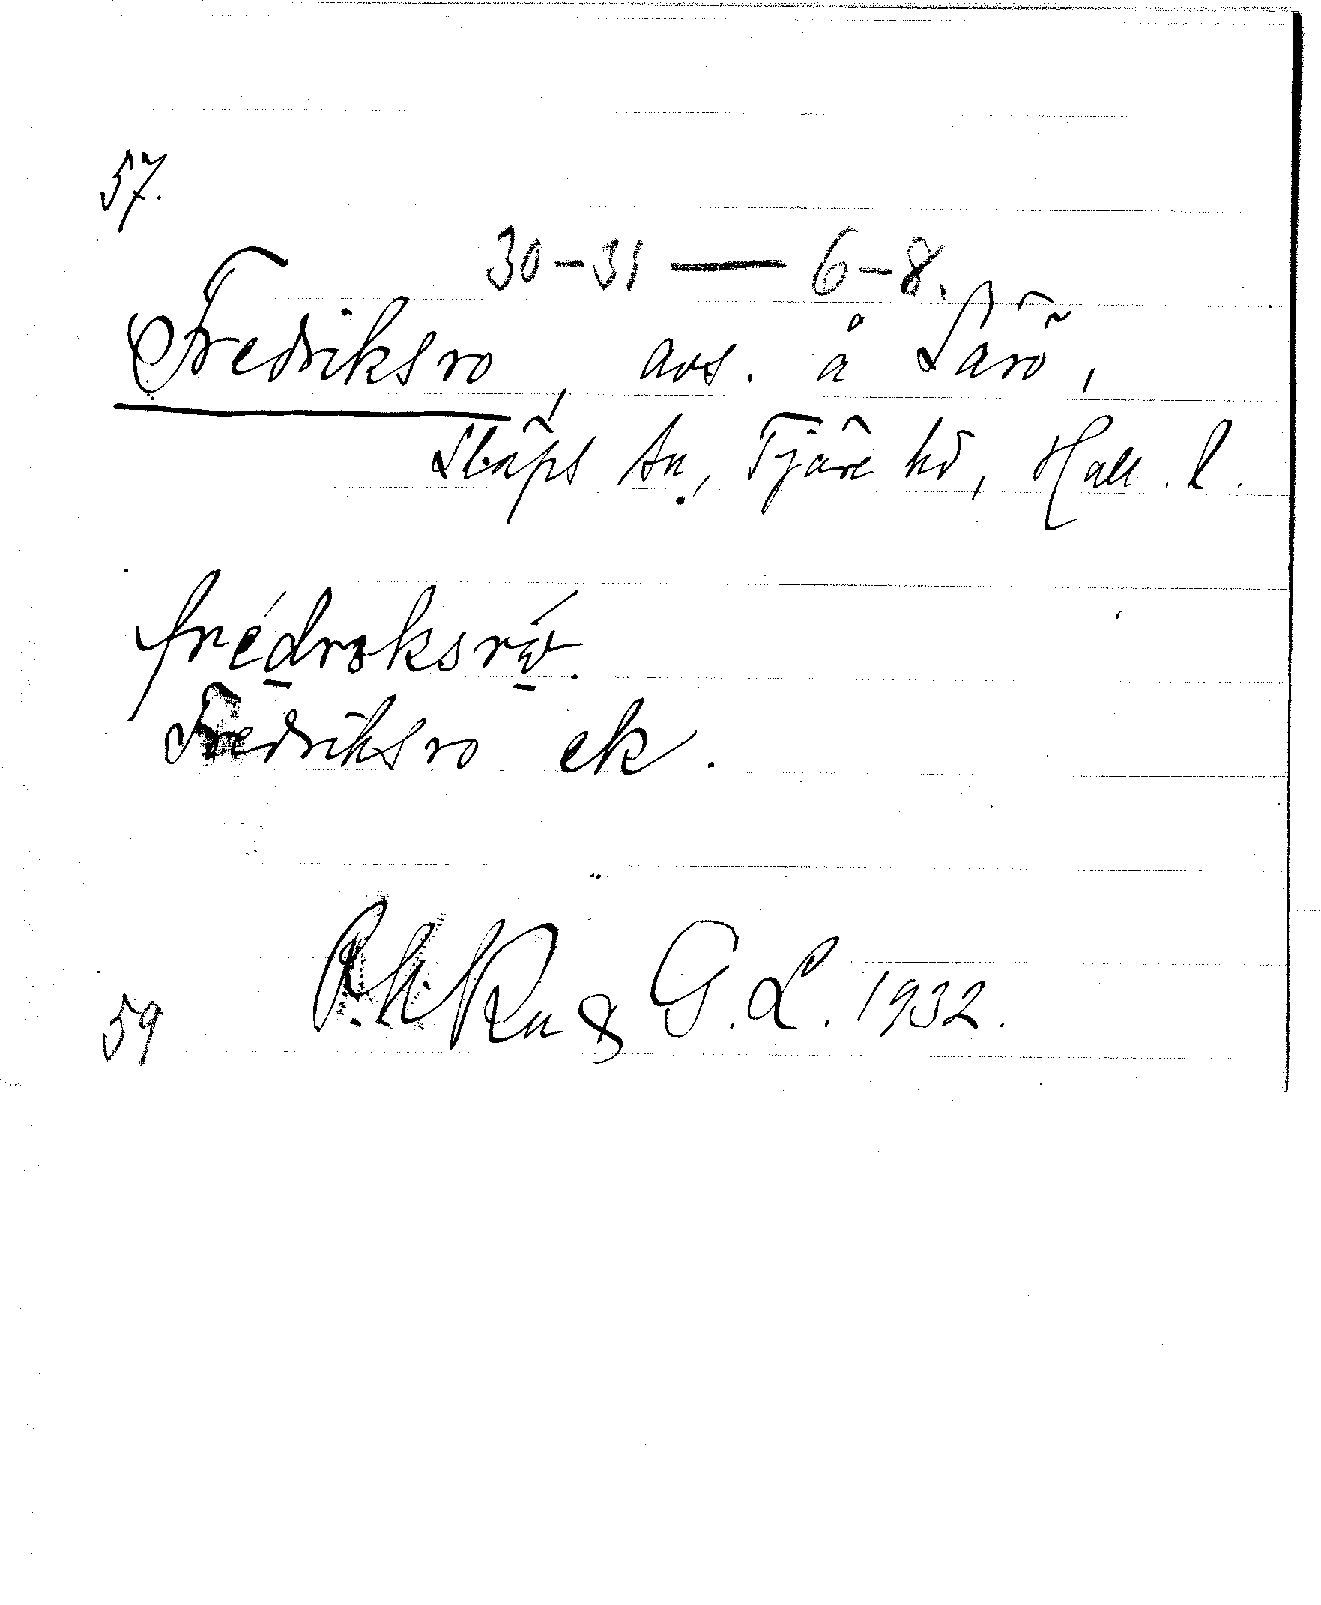 57.
30-31 — 6-8.
Fredriksro, avs. å Särö,
Släps sn, Fjäre hd, Hall. l.
frédroksrö́.
Fredriksro ek.
& G. L. 1932.
59